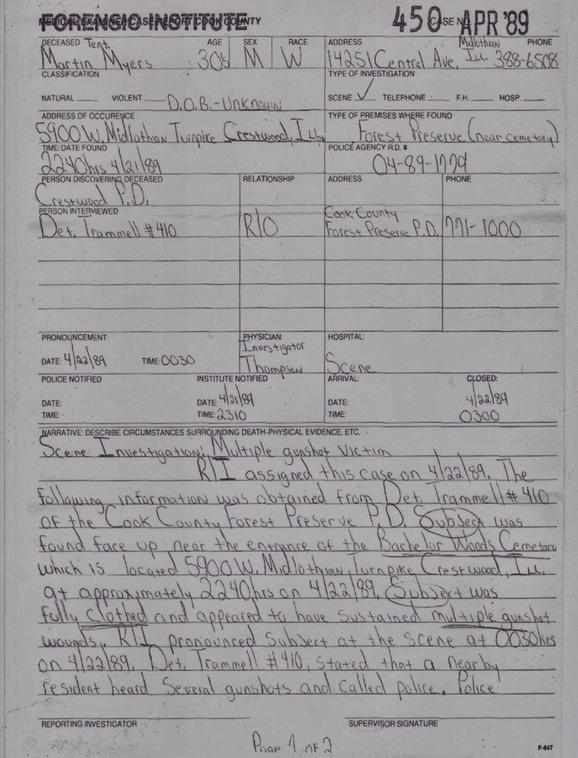 FORENSIC INSTITUTE
MEDICAL EXAMINER CASE REPORT COOK COUNTY
450 APR '89
CASE NO.
DECEASED Tent. AGE SEX RACE ADDRESS Midlothian PHONE
Martin Myers 30s M W 14251 Central Ave, Ill. 388-6508
CLASSIFICATION TYPE OF INVESTIGATION
NATURAL VIOLENT D.O.B.-Unknown SCENE ✓ TELEPHONE F.H. HOSP.
ADDRESS OF OCCURENCE TYPE OF PREMISES WHERE FOUND
5900 W. Midlothian Turnpike Crestwood, Ill. Forest Preserve (near cemetary)
TIME/DATE FOUND POLICE AGENCY R.D. #
2240hrs 4/21/89 04-89-1779
PERSON DISCOVERING DECEASED RELATIONSHIP ADDRESS PHONE
Crestwood P.D.
PERSON INTERVIEWED
Det. Trammell #410 R/O Cook County
Forest Preserve P.D. 771-1000
PRONOUNCEMENT: PHYSICIAN: HOSPITAL:
Investigator
DATE: 4/22/89 TIME: 0030 Thompson Scene
POLICE NOTIFIED INSTITUTE NOTIFIED ARRIVAL: CLOSED:
DATE: DATE: 4/21/89 DATE: 4/22/89
TIME: TIME: 2310 TIME: 0300
NARRATIVE: DESCRIBE CIRCUMSTANCES SURROUNDING DEATH-PHYSICAL EVIDENCE, ETC.
Scene Investigation: Multiple gunshot Victim
R/I assigned this case on 4/22/89. The
following information was obtained from Det. Trammell #410
of the Cook County Forest Preserve P.D. Subject was
found face up near the entrance of the Bachelor Woods Cemetary
which is located 5900 W. Midlothian Turnpike Crestwood, Ill.
at approximately 2240hrs on 4/22/89. Subject was
fully clothed and appeared to have sustained multiple gunshot
wounds, R/I pronounced subject at the scene at 0030hrs
on 4/22/89. Det. Trammell #410, stated that a nearby
resident heard several gunshots and called police. Police
REPORTING INVESTIGATOR SUPERVISOR SIGNATURE
Page 1 of 2
F-447